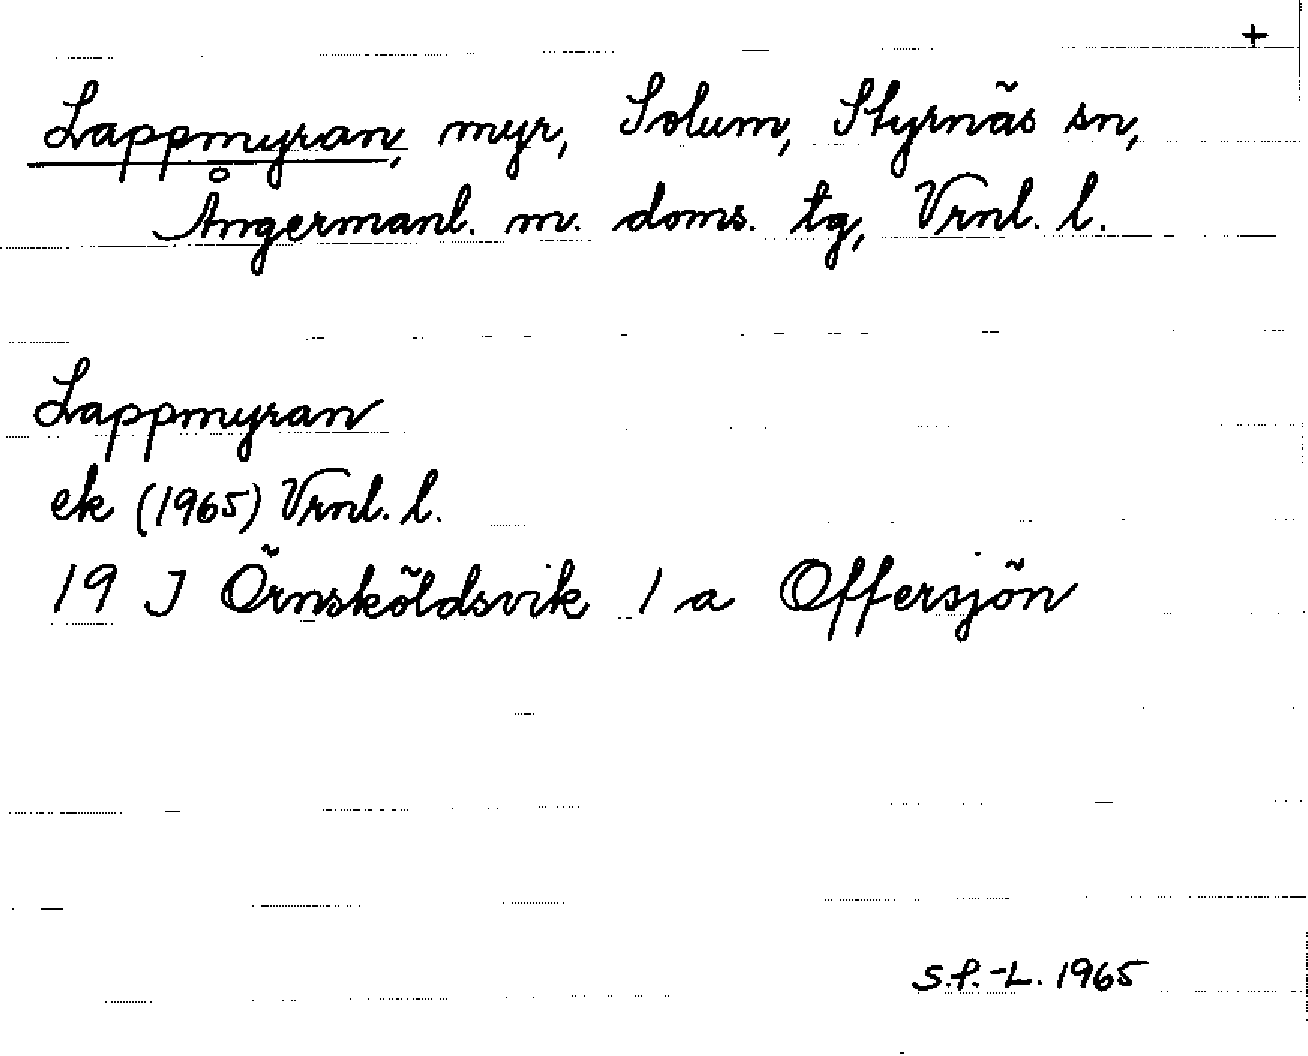 +
Lappmyran, myr, Solum, Styrnäs sn,
Ångermanl. m. doms. tg, Vrnl. l.
Lappmyran
ek (1965) Vrnl. l.
19 J Örnsköldsvik 1 a Offersjön
S.P.-L. 1965